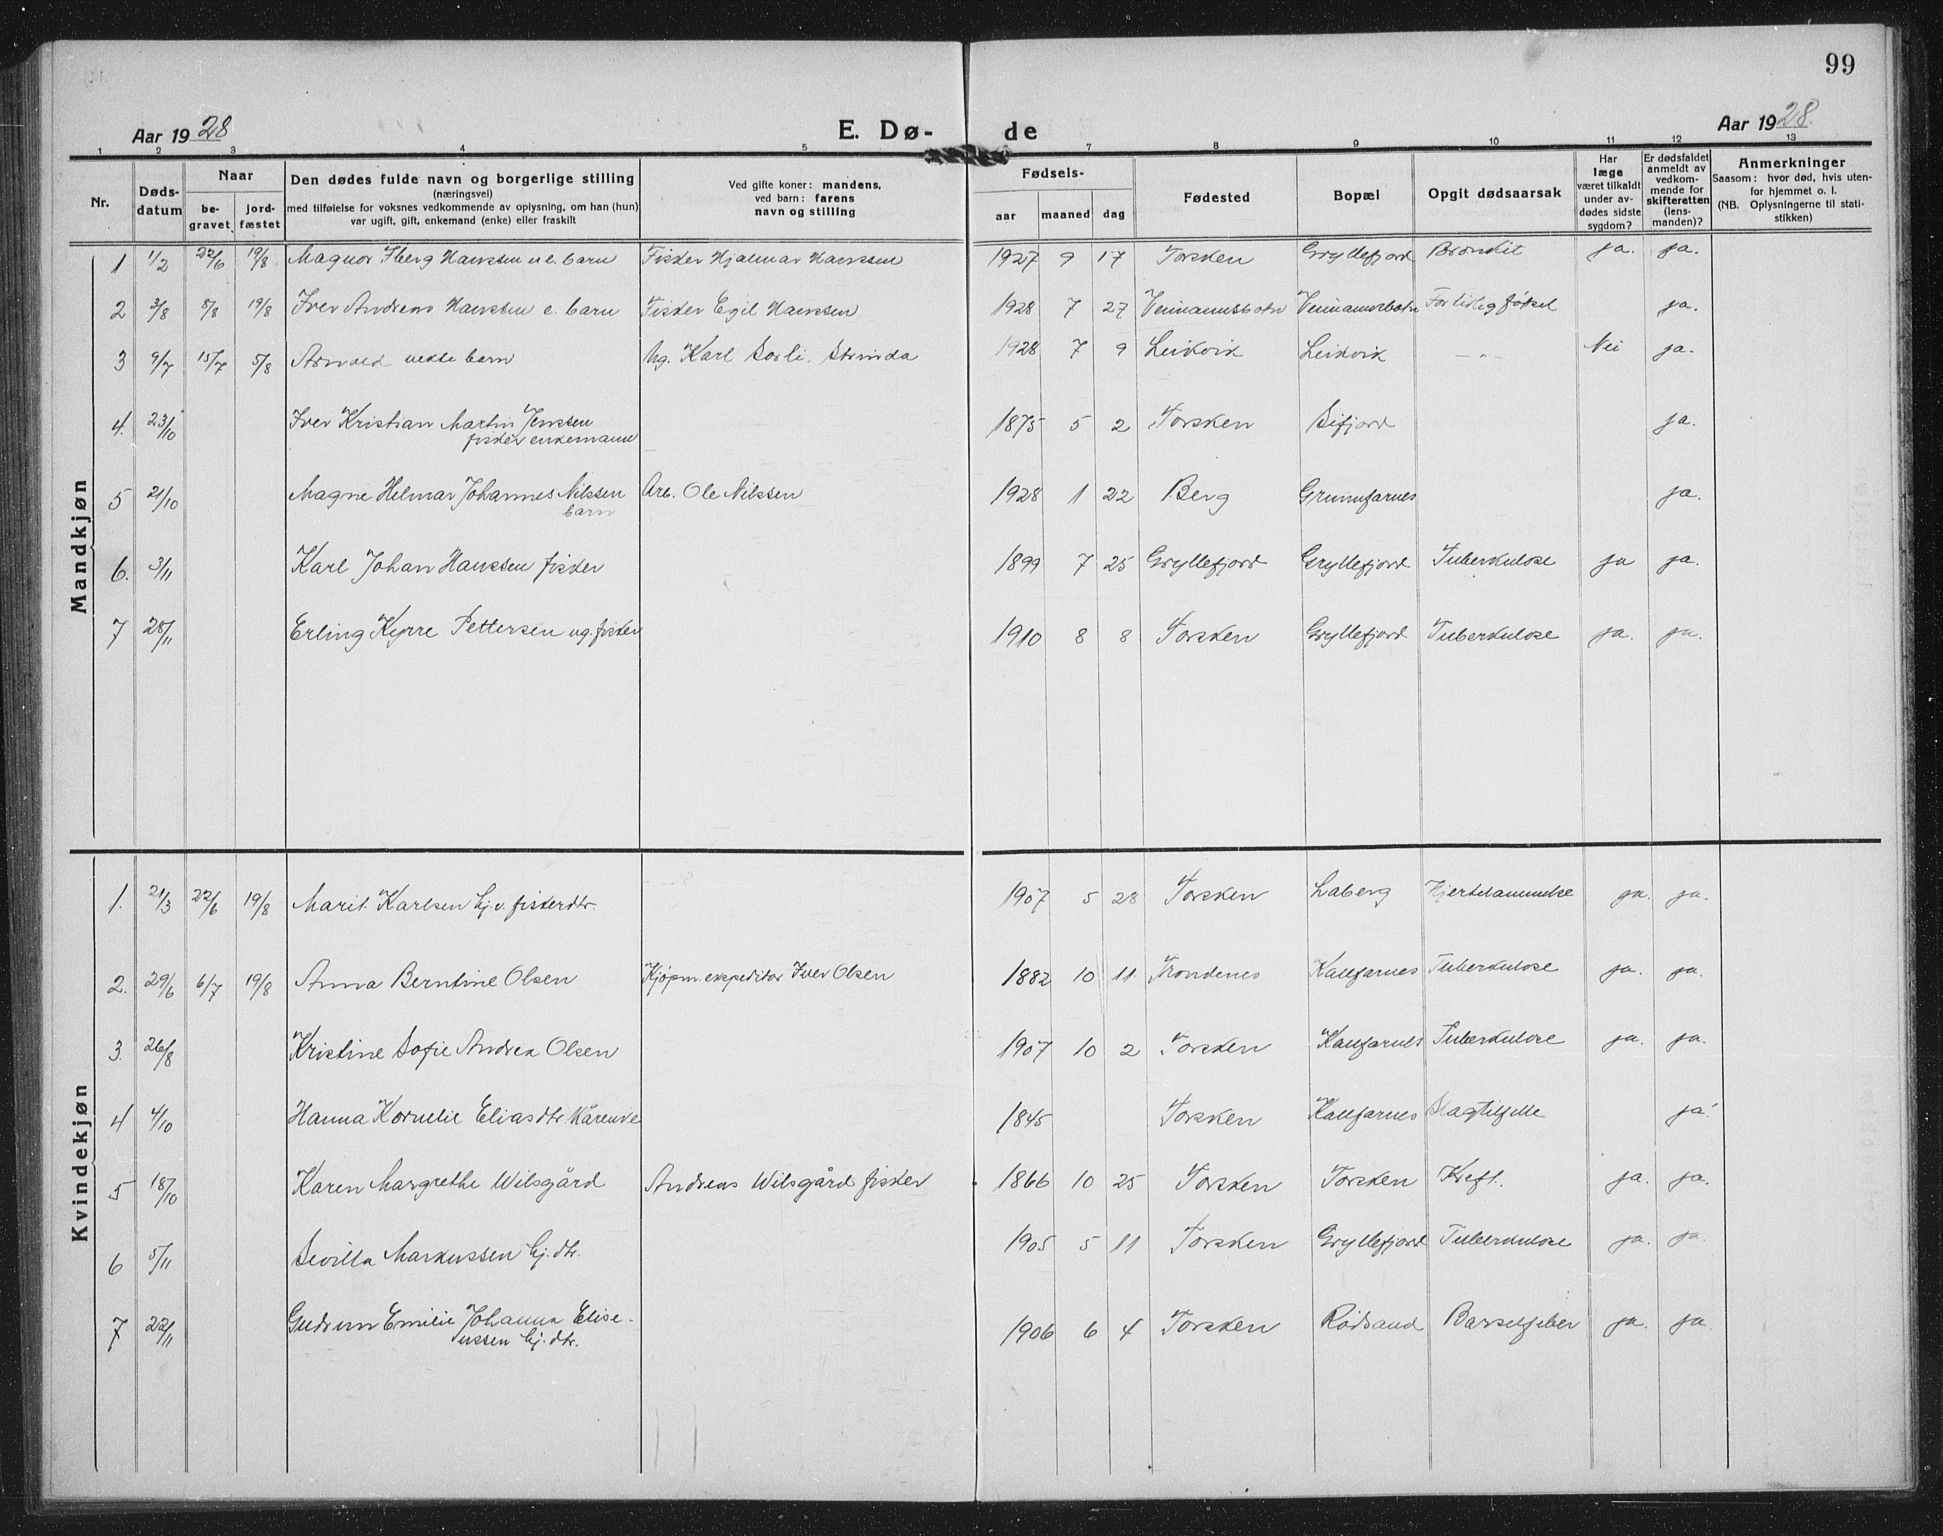 99
Aar 1928 E. Dø- de Aar 1928.
1 2 3 4 5 7 8 9 10 11 12 13
Nr. Døds-datum Naar begravet jordfæstet Den dødes fulde navn og borgerlige stilling (næringsvei) med tilføielse for voksnes vedkommende av oplysning, om han (hun) var ugift, gift, enkemand (enke) eller fraskilt Ved gifte koner: mandens, ved barn: farens navn og stilling Fødsels- aar maaned dag Fødested Bopæl Opgit dødsaarsak Har læge været tilkaldt under avdødes sidste sygdom? Er dødsfaldet anmeldt av vedkommende for skifteretten (lensmanden)? Anmerkninger Saasom: hvor død, hvis utenfor hjemmet o. l. (NB. Oplysningerne til statistikken)
Mandkjøn
1 1/2 22/6 19/8 Magnor Iberg Hanssen u e. barn Fisker Hjalmar Hanssen 1927 9 17 Torsken Gryllefjord Bronkit ja. ja.
2 3/8 8/8 19/8 Iver Andreas Hanssen e. barn Fisker Egil Hanssen 1928 7 27 For tidlig fødsel ja.
3 9/7 15/7 5/8 Arnold uekte barn Ug. Karl Strinda 1928 7 9 Leikvik Leikvik —"— Nei ja.
4. 23/10 Iver Kristian Martin Jenssen 1875 5 2 Torsken Sifjord ja.
fisker enkemann
5 21/10 Magne Helmar Johannes Nilssen Arb. Ole Nilssen 1928 1 22 Berg Grunnfarnes ja.
barn
6. 3/11 Karl Johan Hanssen fisker 1899 7 25 Gryllefjord Gryllefjord Tuberkulose ja ja.
7 28/11 Erling Kyrre Pettersen ug. fisker 1910 8 8 Torsken Gryllefjord Tuberkulose ja. ja.
Kvindekjøn
1. 21/3 22/6 19/8 Marit Karlsen hj.v. fiskerdtr. 1907 5 28 Torsken Laberg Hjertelammelse ja. ja.
2. 29/6 6/7 19/8 Anna Berntine Olsen Kjøpm. ekspeditor Iver Olsen 1882 10 11 Trondenes Kaufarnes Tuberkulose ja. ja.
3. 26/8 Kristine Sofie Andrea Olsen 1907 10 2 Torsken Kaufarnes Tuberkulose ja. ja.
4 4/10 Hanna Kornelie Eliasdtr. 1845 Torsken Kaufarnes Slagtilfelle ja
5 18/10 Karen Margrethe Wilsgård Andreas Wilsgård fisker 1866 10 25 Torsken Torsken Kreft. ja. ja.
6 5/11 Sevilla Markussen hj. dtr. 1905 5 11 Torsken Gryllefjord Tuberkulose ja. ja.
7 22/11 Gudrun Emilie Johanna Elise- 1906 6 4 Torsken Rødsand Barselfeber ja. ja.
ussen hj. dtr.